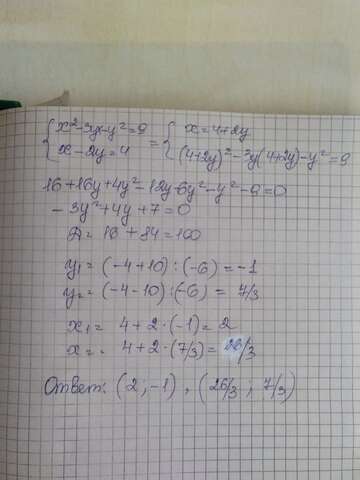 {x²-3yx-y²=9 = {x=4+2y
{x-2y=4 {(4+2y)²-3y(4+2y)-y²=9
16+16y+4y²-12y-6y²-y²-9=0
-3y²+4y+7=0
D=16+84=100
y₁=(-4+10):(-6)=-1
y₂=(-4-10):(-6)=7/3
x₁=4+2·(-1)=2
x₂=4+2·(7/3)=26/3
Ответ: (2;-1), (26/3; 7/3)